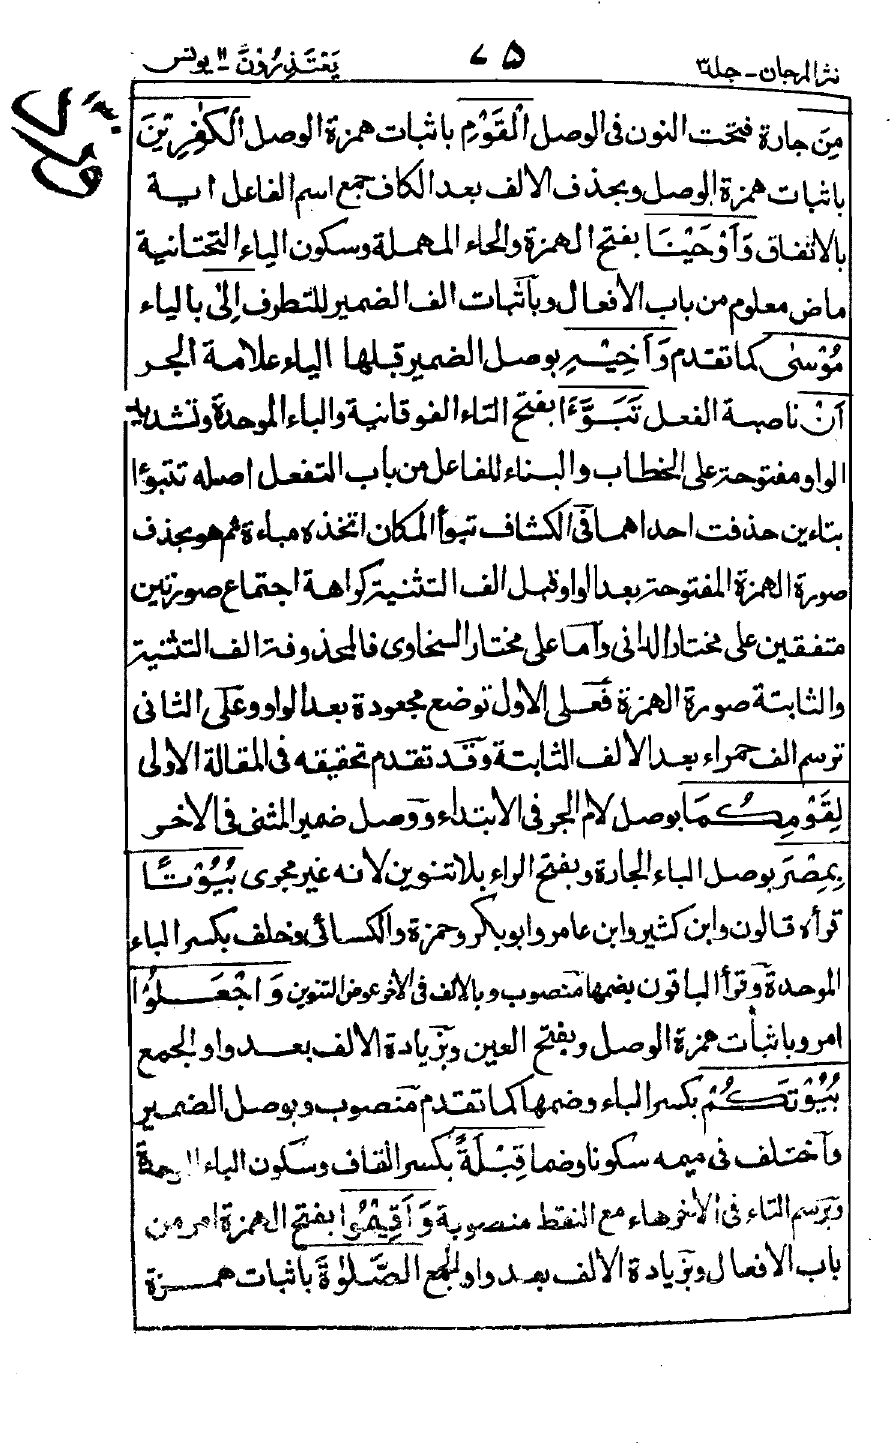 نثر المرجان - جلد ٣ ٧٥ يَعْتَذِرُوْنَ ١١ يونس
مِنَ جارة فتحت النون فى الوصل الْقَوْمِ باثبات همزة الوصل الْكٰفِرِيْنَ
باثبات همزة الوصل وبحذف الالف بعد الكاف جمع اسم الفاعل اية
بالاتفاق وَاَوْحَيْنَا بفتح الهمزة والحاء المهملة وسكون الياء التحتانية
ماض معلوم من باب الافعال وباثبات الف الضمير للتطرف اِلٰى بالياء
مُوْسٰى كما تقدم وَاَخِيْهِ بوصل الضمير قبلها الياء علامة الجر
اَنْ ناصبة الفعل تَبَوَّءَا بفتح التاء الفوقانية والباء الموحدة وتشديد
الواو مفتوحة على الخطاب والبناء للفاعل من باب التفعل اصله تتبوءا
بتاءين حذفت احداهما فى الكشاف تبوأ المكان اتخذه مباءة ثم هو بحذف
صورة الهمزة المفتوحة بعد الواو قبل الف التثنية كراهة اجتماع صورتين
متفقين على مختار الدانى واما على مختار السخاوى فالمحذوفة الف التثنية
والثابتة صورة الهمزة فعلى الاول توضع مجعودة بعد الواو وعلى الثانى
ترسم الف حمراء بعد الالف الثابتة وقد تقدم تحقيقه فى المقالة الاولى
لِقَوْمِكُمَا بوصل لام الجر فى الابتداء ووصل ضمير المثنى فى الاخر
بِمِصْرَ بوصل الباء الجارة وبفتح الراء بلا تنوين لانه غير مجرى بُيُوْتًا
قرأه قالون وابن كثير وابن عامر وابو بكر وحمزة والكسائى وخلف بكسر الباء
الموحدة وقرأ الباقون بضمها منصوب وبالالف فى الاخر عوض التنوين وَاجْعَلُوْا
امر وباثبات همزة الوصل وبفتح العين وبزيادة الالف بعد واو الجمع
بُيُوْتَكُمْ بكسر الباء وضمها كما تقدم منصوب وبوصل الضمير
واختلف فى ميمه سكونا وضما قِبْلَةً بكسر القاف وسكون الباء الموحدة
وبرسم التاء فى الاخر هاء مع النقط منصوبة وَاَقِيْمُوا بفتح الهمزة امر من
باب الافعال وبزيادة الالف بعد واو الجمع الصَّلٰوةَ باثبات همزة